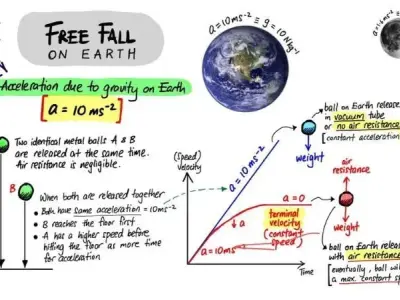 FREE FALL
ON EARTH
Acceleration due to gravity on Earth
[a = 10 ms⁻²]
a = 10 ms⁻² ≡ g = 10 N kg⁻¹
Two identical metal balls A & B
are released at the same time.
Air resistance is negligible.
B
When both are released together
• Both have same acceleration = 10 ms⁻²
• B reaches the floor first
• A has a higher speed before
hitting the floor as more time
for acceleration
(speed)
velocity
a = 10 ms⁻²
ball on Earth released
in vacuum tube
or no air resistance
[constant acceleration
weight
air
resistance
a = 0
↓ a
terminal
velocity
(constant
speed)
a = 10 ms⁻²
weight
ball on Earth relea
with air resistance
[eventually, ball wil
a max. constant sp
Time